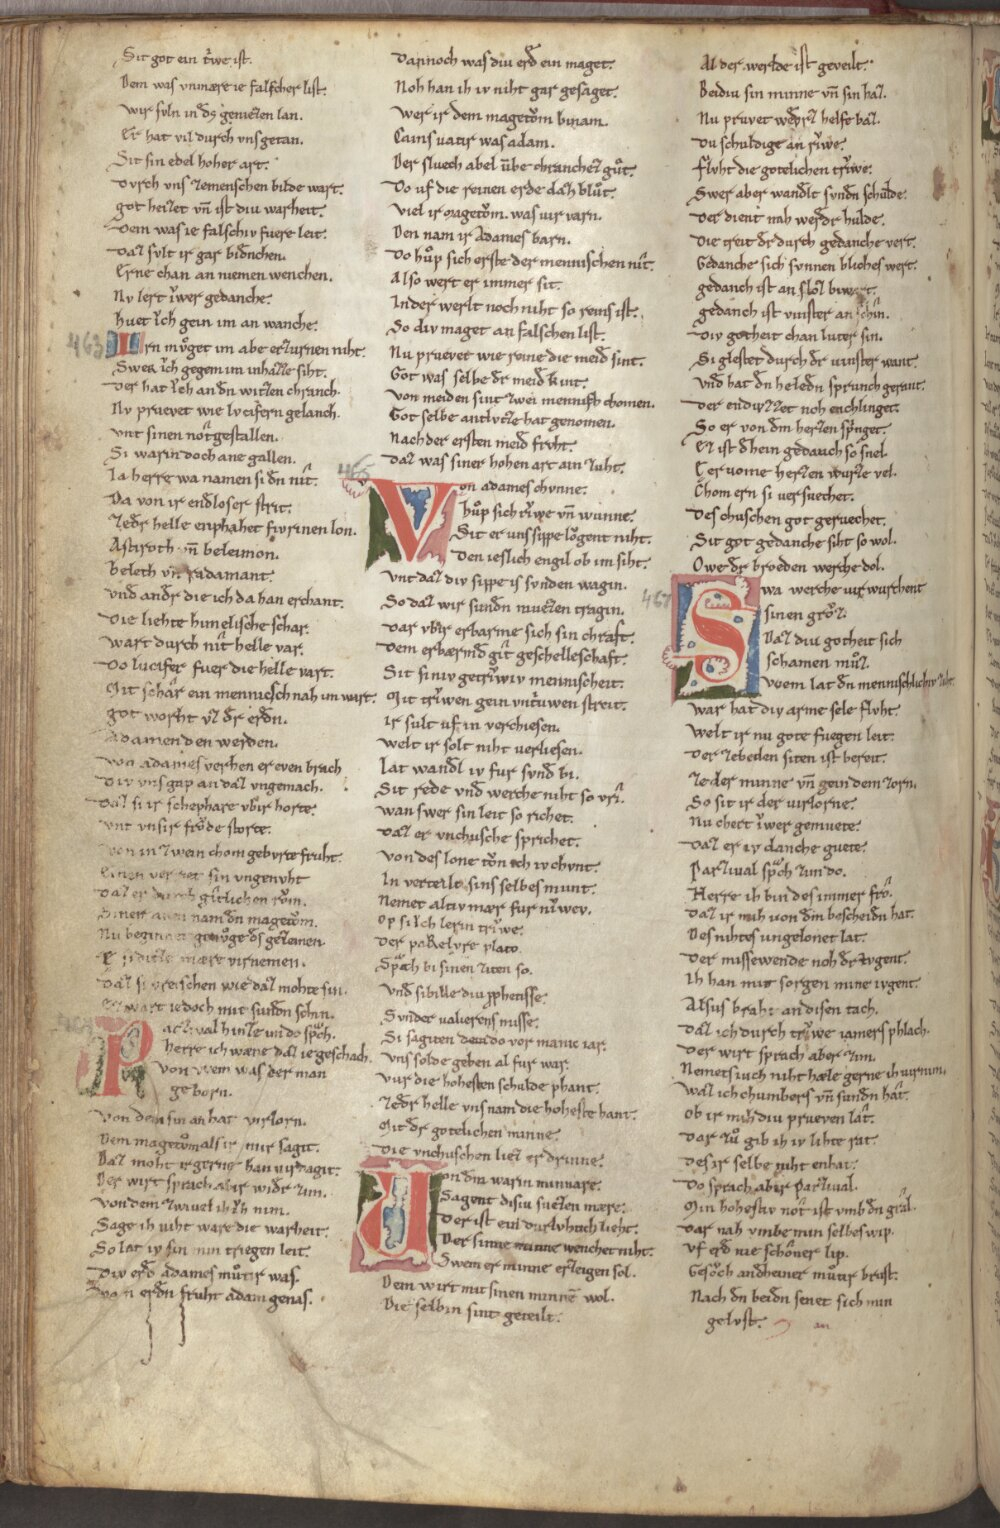 Sit got ein tͥwe ist.
Dem was vnmære ie falscher list.
wir svln in dͦs genieʒen lan.
Er hat vil durch vns getan.
Sit sin edel hoher art.
Dvrch vns ʒemenschen bilde wart.
got heiʒet vn̄ ist diu warheit.
Dem was ie falschiv fuere leit.
Daʒ svlt ir gar bidēnchen.
Erne chan an niemen wenchen.
Nv lert iͮwer gedanche.
huet iͮch gein im an wanche.
463 Irn mvͦget im abe erʒurnen niht.
Sweʀ iͮch gegem im in haʒʒe siht.
Der hat iͮch an dn̄ witʒen chranch.
Nv pruevet wie lvcifern gelanch.
vnt sinen noͮtgestallen.
Si warin doch ane gallen.
Ia herre wa namen si dn̄ nît.
Da von ir endloser strit.
ʒedr̄ helle enphahet sivrinen lon.
Astiroth vn̄ beleimon.
beleth vn̄ radamant.
vnd andr̄ die ich da han erchant.
Die liehte himelische schar.
wart durch nît helle var.
Do lucifer fuer die helle vart.
Mit schâr ein mennicsch nah im wart.
got worht vʒ dr̄ erdn̄.
Adamen den werden.
von adames verhen er even brach
Div vns gap an daʒ vngemach.
daʒ si ir schephare vbir horte.
vnt vnsir froͤde storte.
von in ʒwein chom gebvrte fruht.
Einen verriet sin vngenvht
Daʒ er durch gîtlichen roͮm.
Siner anen nam dn̄ magetoͮm.
Nu beginnet genvͦge dͦs geʒemen
E si diese mære virnemen.
daʒ si vreischen wie daʒ mohte sin.
Eʒ wart iedoch mit sundn̄ schin.
Parʒival hinʒe im do spͣch.
herre ich wæne daʒ ie geschach.
von wem was der man
geborn.
von dem sin an hat virlorn.
Dem magetoͮm als ir mir sagit.
Daʒ moht ir gerne han virdagit.
Der wirt sprach abir widr̄ ʒim.
von dem ʒwivel ih iͮch nim.
Sage ih niht ware die warheit.
So lat iv sin min triegen leit.
Div erd̄ adames muͦtir was.
von erdn̄ fruht adam genas.
Dannoch was diu erd̄ ein maget.
Noh han ih iv niht gar gesaget.
wer ir dem magetoͮm binam.
Cains vatir was adam.
Der sluech abel vͤbe chrancheʒ guͦt.
Do uf die reinen erde daʒ bluͦt.
viel ir magetoͮm was vir varn.
Den nam ir Adames barn.
Do huͦp sich erste der mennischen nît.
Also wert er immer sit.
In der werlt noch niht so reines ist.
So div maget an falschen list.
Nu pruevet wie reine die meid̄ sint.
Got was selbe dr̄ meid̄ kint.
von meiden sint ʒwei mennisch chomen.
Got selbe antlvʒʒe hat genomen.
Nach der ersten meid̄ frvht.
daʒ was siner hohen art ain ʒuht.
465 Von adames chvnne.
huͦp sich riͮwe vn̄ wunne.
Sit er uns sippe loͮgent niht.
Den ieslich engil ob im siht.
vnt daʒ div sippe is svnden wagin.
So daʒ wir sundn̄ mueʒen tragin.
Dar vbir erbarme sich sin chraft.
Dem erbærmd̄ gît geschelleschaft.
Sit siniv getriͮwiv mennischeit.
Mit triͮwen gein vntriͮwen streit.
ir sult uf in verchiesen.
welt ir solt niht verliesen.
Lat wandl̄ iv fur svnd̄ bi.
Sit rede vnd werche niht so vrî.
wan swer sin leit so richet.
Daʒ er vnchusche sprichet.
von des lone toͮn ich iv chvnt.
In verteilt sins selbes munt.
Nemet altiv mær fur niͮwev.
Op si iͮch lerin triͮwe.
der paʀelyre plato.
Spͣch bi sinen ʒiten so.
vnd sibille diu pͦphetisse.
Svnder valierens misse.
Si sagiten do vor manic iar.
vns solde geben al fur war.
vur die hohesten schulde phant.
ʒedr̄ helle vns nam die hoheste hant.
Mit dr̄ gotelichen minne.
die vnchuschen lieʒ er drinne.
Von dem warin minnare.
Sagent disiu sueʒen mære.
der ist ein durlvhtich lieht.
der sinne minne wenchet niht.
Swem er minne erʒeigen sol.
Dem wirt mit sinen minnē wol.
Die selbin sint geteilt.
Al der werlde ist geveilt.
Beidiu sin minne vn̄ sin haʒ.
Nu pruvet wedrʒ helfe baʒ.
Du schuldige an riͮwe.
flvht die gotelichen triͮwe.
Swer aber wandlt svndn̄ schulde.
der dient nah werdr̄ hulde.
die treit dr̄ durch gedanche vert.
Gedanche sich svnnen blickes wert.
gedanch ist an sloʒ biwart.
gedanch ist vinster an schîn.
Div gotheit chan luter sin.
Si glestet durch dr̄ vinster want
vnd̄ hat dn̄ heledn̄ sprunch gerant.
der endiuʒʒet noh enchlinget.
So er von dm̄ herʒen spͥnget.
Eʒ ist dhein gedanch so snel.
Eer vome herʒen wurʒe vel.
Chom ern si versuechet.
des chuschen got geruechet.
Sit got gedanche siht so wol.
Owe dr̄ broeden werche dol.
467 Swa werche vir wurchent
sinen groͮʒ.
Daʒ diu gotheit sich
schamen muͦʒ.
wem lat dn̄ mennischlichiv ʒuht.
war hat div arme sele flvht.
welt ir nu gote fuegen leit.
der ʒebeden siten ist bereit.
ʒe der minne vn̄ gein dem ʒorn.
So sit ir der virlorne.
Nu chert iͮwer gemuete.
daʒ er iv danche guete.
Parʒival spͣch ʒim do.
Herre ih bin des immer frô.
daʒ ir mih von dm̄ bescheidn̄ hat.
des nihtes ungelonet lat.
der missewende noh dr̄ tvgent.
Ih han mit sorgen mine ivgent.
Alsus braht an disen tach.
daʒ ich durch triͮwe iamers phlach.
der wirt sprach aber ʒim.
Nemets iuch niht hæle gerne ih virnim.
waʒ ich chumbers vn̄ sundn̄ hât.
ob ir mih diu prueven lât.
dar ʒuͦ gib ih iv lihte rat
des ir selbe niht enhat.
do sprach abir Parʒival.
Min hohestiv nôt ist vmb dn̄ grâl.
dar nah vmbe min selbes wip.
vf erd̄ nie schoͤner lip.
Gesoͮch andheiner muͦtir brust.
Nach dn̄ beidn̄ senet sich min
gelvst.
an